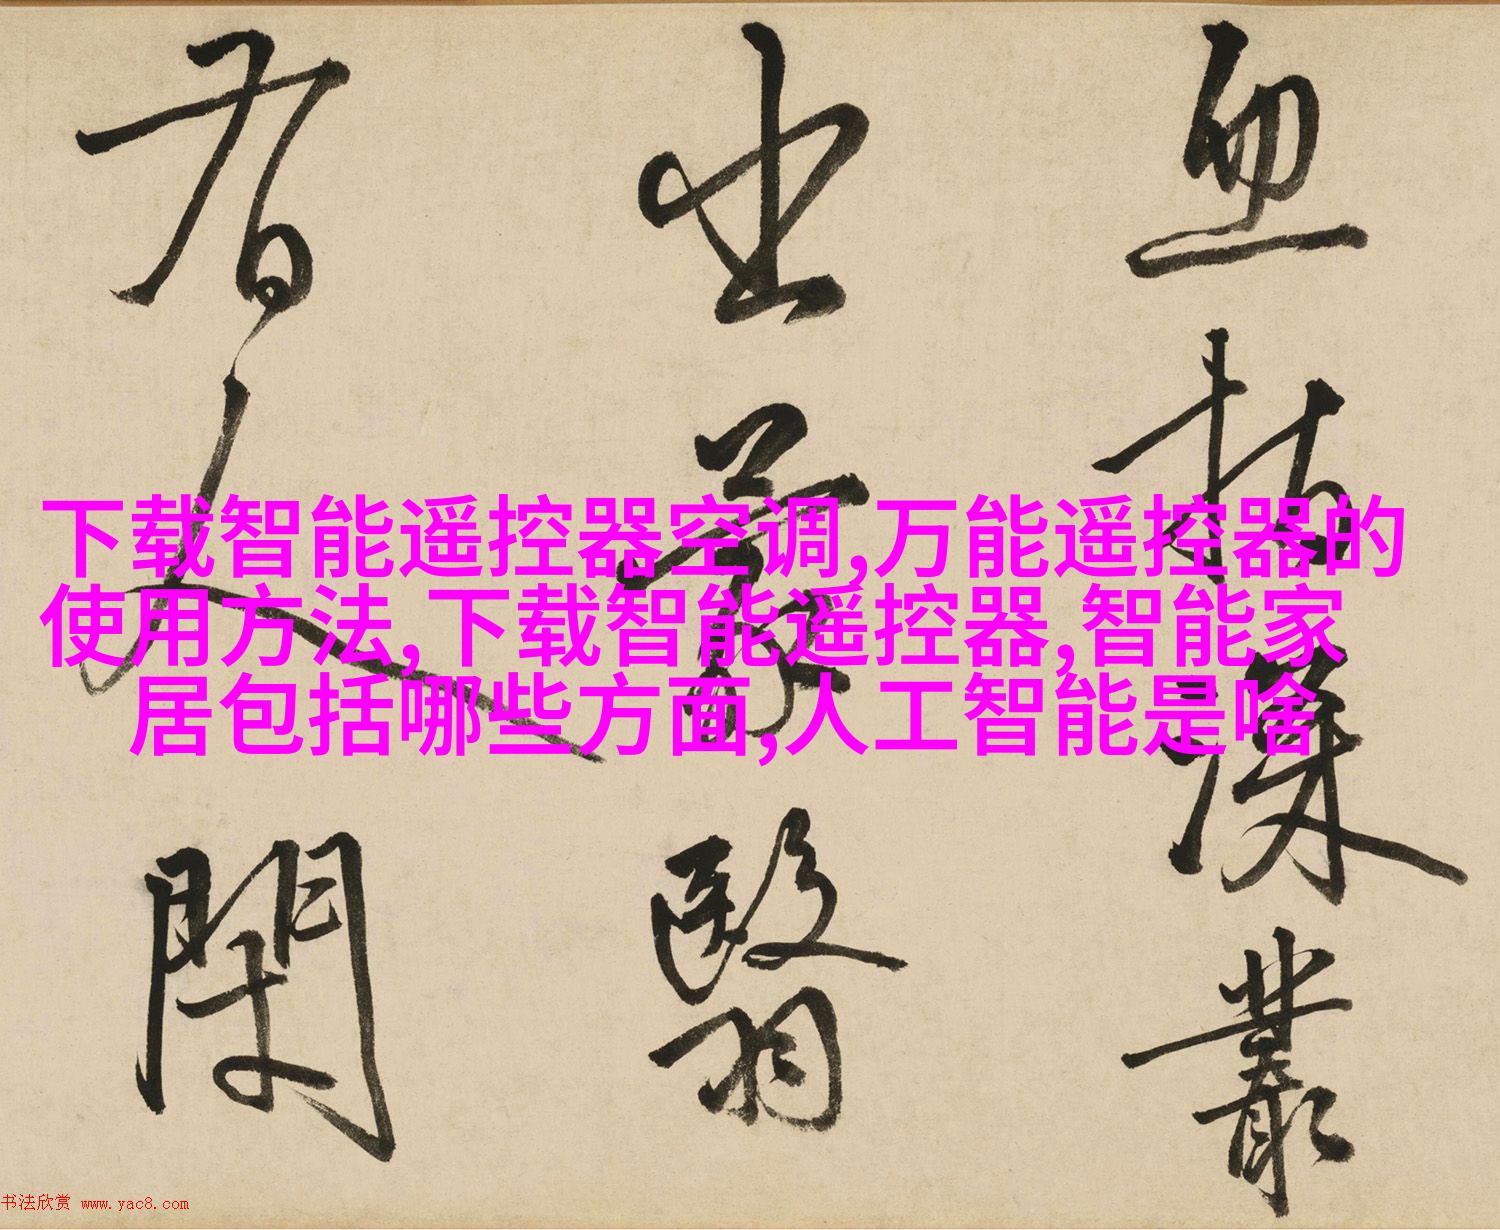 血指漢叢
出蒙翳
者又閑
下载智能遥控器空调,万能遥控器的
使用方法,下载智能遥控器,智能家
居包括哪些方面,人工智能是啥
书法欣赏 www.yac8.com